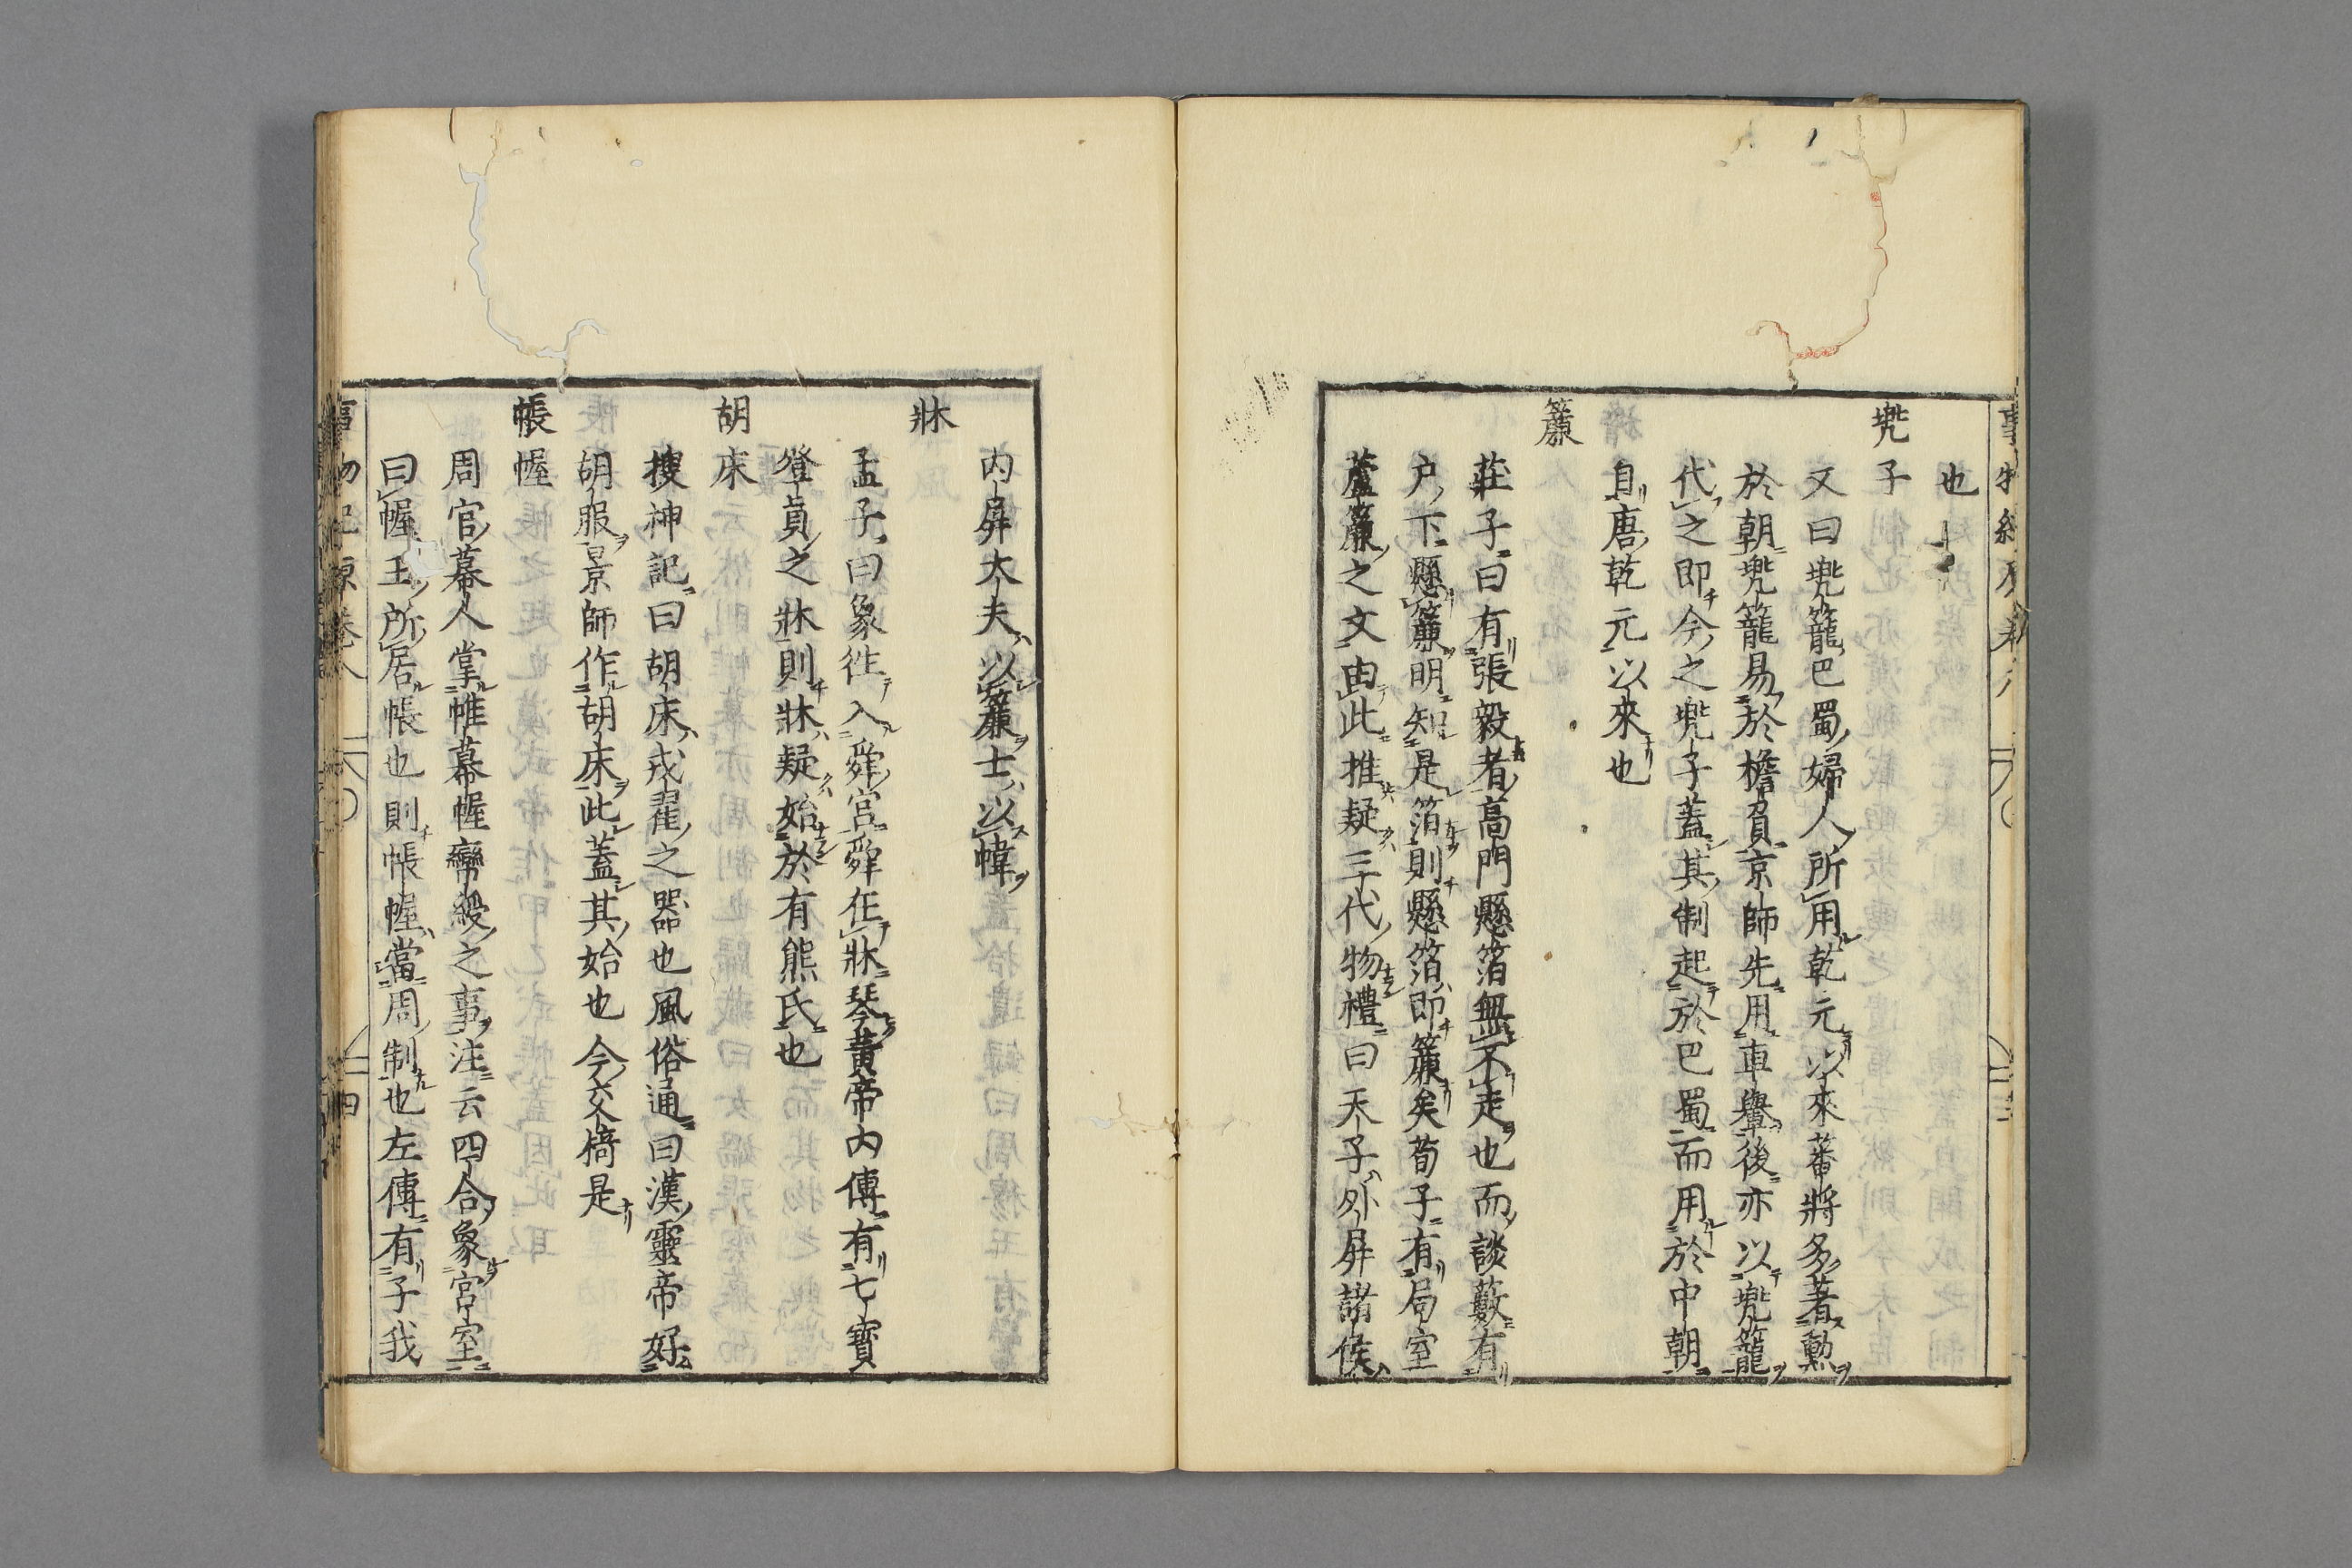 也
兠子
又曰兠籠巴蜀婦人所用乾元以來蕃將多著勲
於朝兠籠易於檐負京師先用車轝後亦以兠籠
代之即今之兠子蓋其制起於巴蜀而用於中朝
自唐乾元以來也
簾
莊子曰有張毅者高門懸箔無不走也而談藪有
戸下懸簾明知是箔則懸箔即簾矣荀子有局室
蘆簾之文由此推疑三代物禮曰天子外屏諸侯
内屏大夫以簾士以幃
牀
孟子曰象徃入舜宮舜在牀琴黄帝内傳有七寳
登眞之牀則牀疑始於有熊氏也
胡床
搜神記曰胡床戎翟之器也風俗通曰漢靈帝好
胡服景師作胡床此蓋其始也今交倚是
帳幄
周官幕人掌帷幕幄帟綬之事注云四合象宮室
曰幄王所居帳也則帳幄當周制也左傳有子我